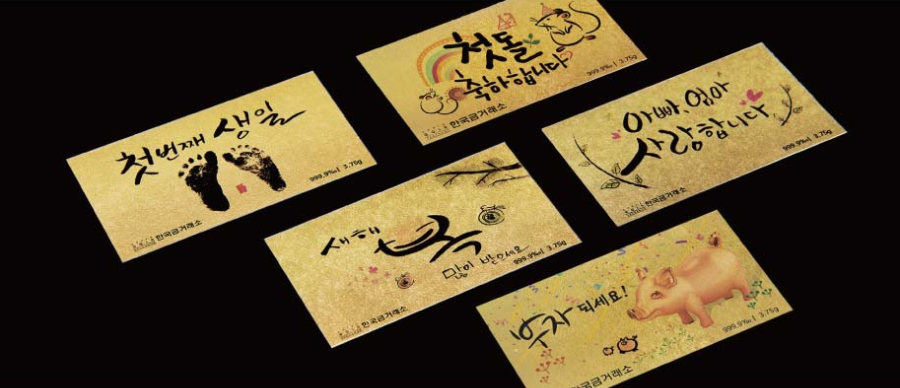 첫돌
축하합니다
999.9‰ | 3.75g
한국금거래소
첫번째 생일
999.9‰ | 3.75g
한국금거래소
아빠, 엄마
사랑합니다
999.9‰ | 3.75g
한국금거래소
새해
복
많이 받으세요
999.9‰ | 3.75g
한국금거래소
부자 되세요!
999.9‰ | 3.75g
한국금거래소